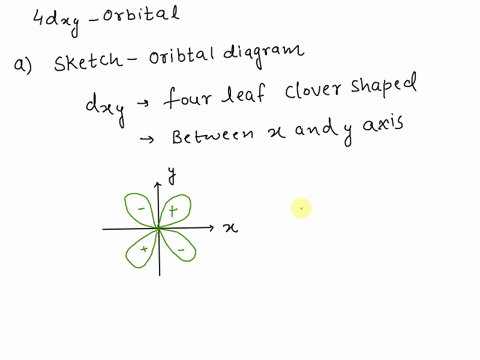 4dxy - Orbital
a) Sketch - Oribtal diagram
dxy → four leaf clover shaped
→ Between x and y axis
y
- +
x
+ -